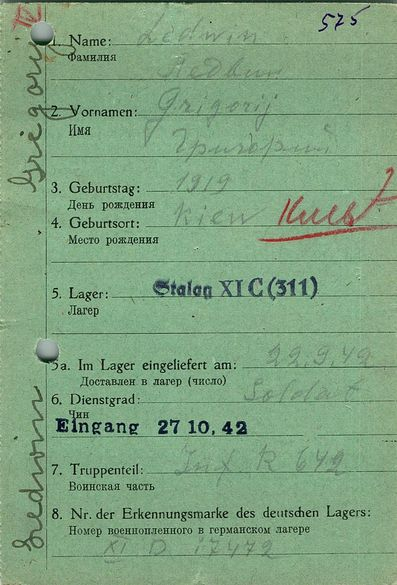 575
1. Name: Ledwin
Фамилия Ледвин
2. Vornamen: Grigorij
Имя Григорий
3. Geburtstag: 1919
День рождения
4. Geburtsort: Kiew Киев
Место рождения
5. Lager: Stalag XI C (311)
Лагер
5a. Im Lager eingeliefert am: 22.9.42
Доставлен в лагер (число)
6. Dienstgrad: Soldat
Чин
Eingang 27 10. 42
7. Truppenteil: Inf. R 642
Воинская часть
8. Nr. der Erkennungsmarke des deutschen Lagers:
Номер военнопленного в германском лагере
XI D 17472
Ledwin Grigorij